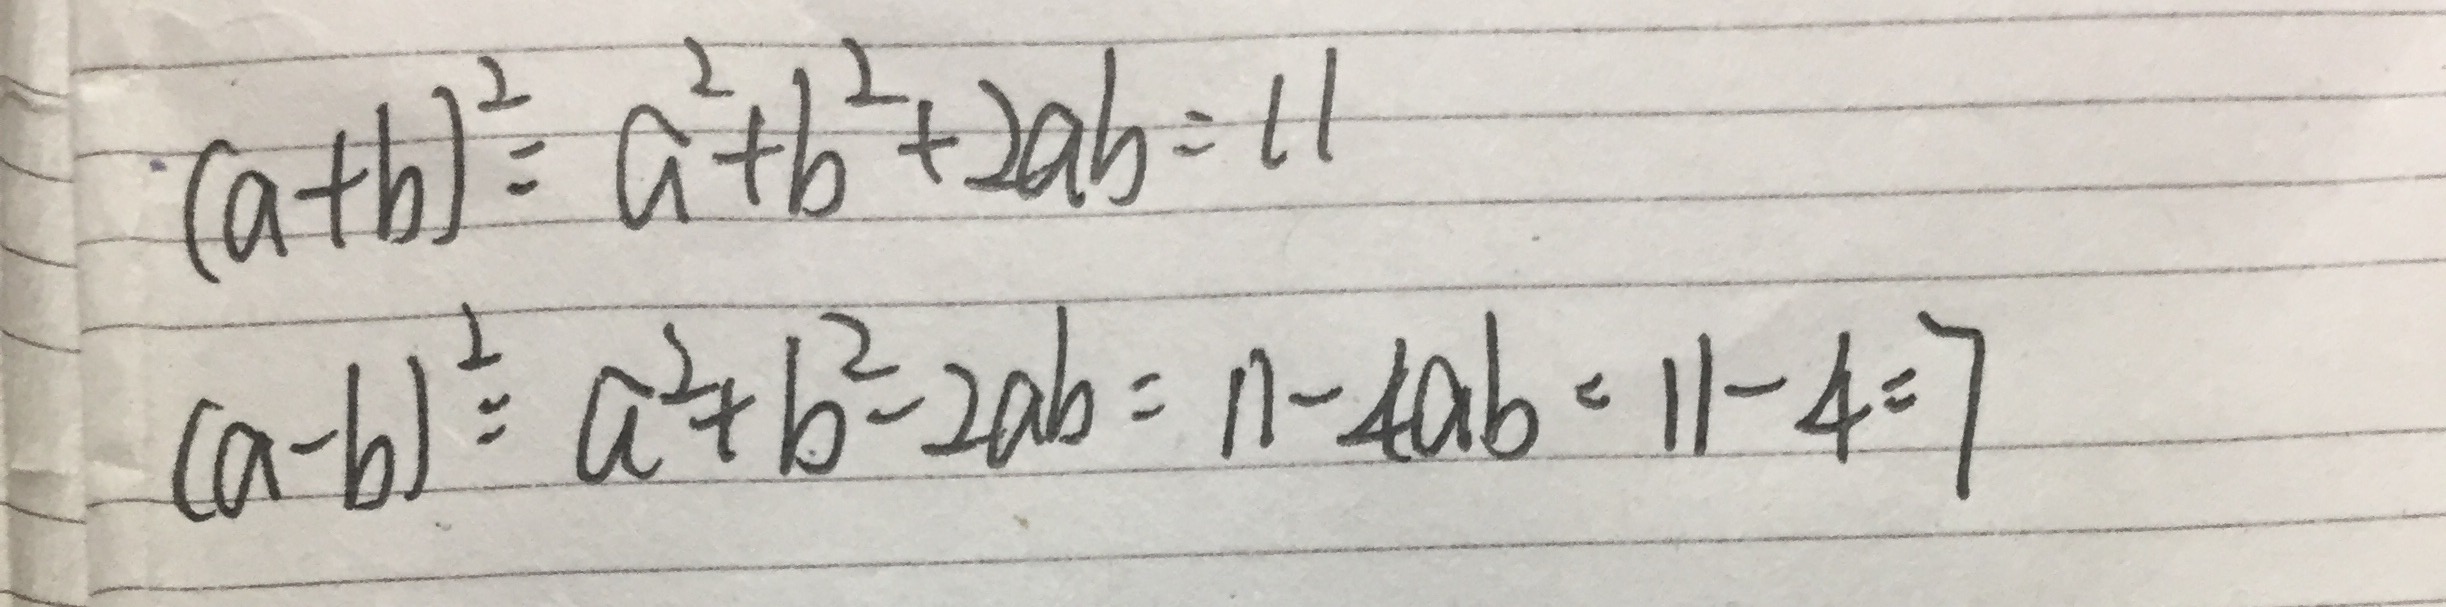 (a+b)²= a²+b²+2ab=11
(a-b)²= a²+b²-2ab=11-4ab=11-4=7